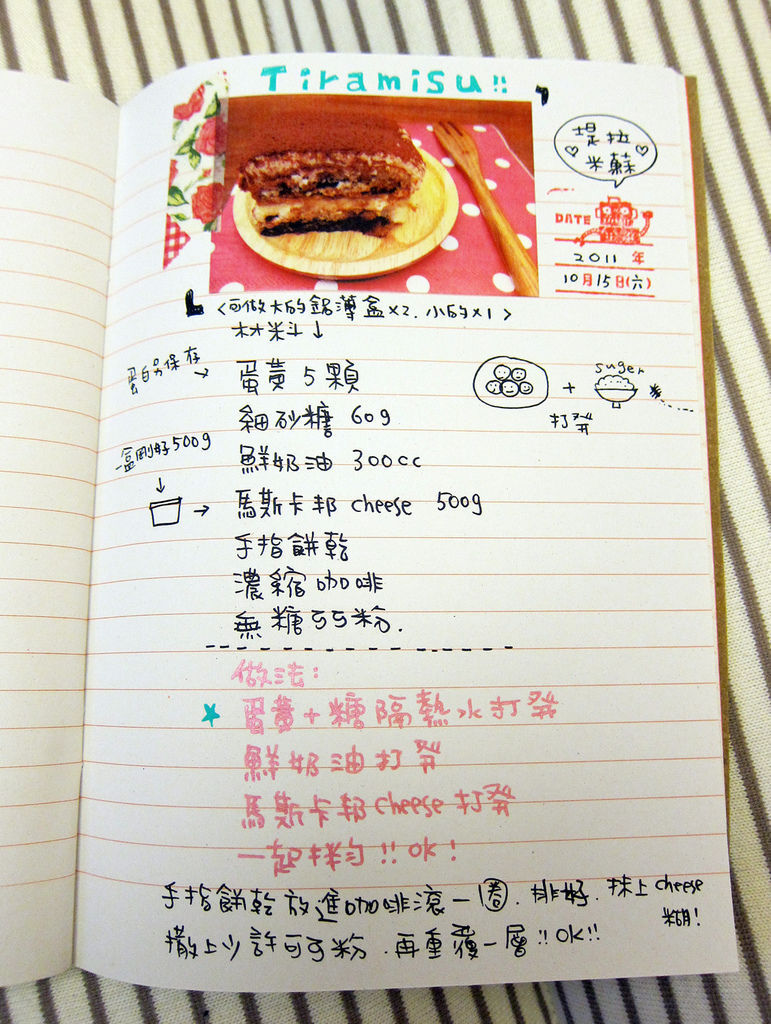 Tiramisu!!
堤拉
米蘇
DATE
2011 年
10月15日(六)
<可做大的鋁薄盒x2. 小的x1>
材料↓
蛋白另保存→
蛋黃 5 顆
suger
+
打發
細砂糖 60g
一盒剛好500g
鮮奶油 300cc
馬斯卡邦 cheese 500g
手指餅乾
濃縮咖啡
無糖可可粉.
做法:
蛋黃+糖隔熱水打發
鮮奶油打發
馬斯卡邦cheese打發
一起拌勻!!ok!
手指餅乾放進咖啡滾一圈. 排好. 抹上cheese
糊!
撒上少許可可粉.再重覆一層!!OK!!